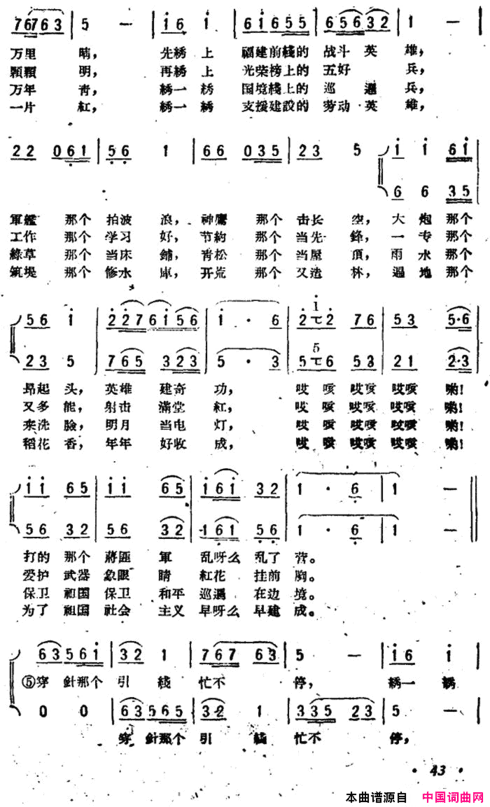 7 6 7 6 3 | 5 — | i 6 i | 6 i 6 5 5 | 6 5 6 3 2 | i — |
万里 晴， 先綉上 福建前綫的 战斗英 雄，
顆顆 明， 再綉上 光荣榜上的 五好 兵，
万年 青， 綉一綉 国境綫上的 巡邏 兵，
一片 紅， 綉一綉 支援建設的 劳动英 雄，
2 2 0 6 1 | 5 6 1 | 6 6 0 3 5 | 2 3 5 | i i 6 i
6 6 3 5
軍艦 那个 拍波 浪， 神鷹 那个 击长 空， 大炮 那个
工作 那个 学习 好， 节約 那个 当先 鋒， 一专 那个
綠草 那个 当床 鋪， 青松 那个 当屋 頂， 雨水 那个
筑堤 那个 修水 庫， 开荒 那个 又造 林， 遍地 那个
5 6 i | 2 2 7 6 i 5 6 | i · 6 | 2 2 7 6 | 5 3 5·6
2 3 5 | 7 6 5 3 2 3 | 5 · 3 | 5 6 5 3 | 2 1 2·3
昂起 头， 英雄 建奇 功， 哎嗨 哎嗨 哎嗨 喲！
又多 能， 射击 滿堂 紅， 哎嗨 哎嗨 哎嗨 喲！
来洗 臉， 明月 当电 灯， 哎嗨 哎嗨 哎嗨 喲！
稻花 香， 年年 好收 成， 哎嗨 哎嗨 哎嗨 喲！
i i 6 5 | i i 6 5 | i 6 i 3 2 | 1 · 6 | 1 —
5 6 3 2 | 5 6 3 2 | 1 6 1 5 6 | 1 · 6 | 1 —
打的 那个 蔣匪 軍 乱呀么 乱了 营。
爱护 武器 象眼 睛 紅花 挂前 胸。
保卫 祖国 保卫 和平 巡邏 在边 境。
为了 祖国 社会 主义 早呀么 早建 成。
6 3 5 6 i | 3 2 1 | 7 6 7 6 3 | 5 — | i 6 i
⑤穿 針那个 引 綫 忙不 停， 綉一綉
0 0 | 6 3 5 6 5 | 3 2 1 | 3 3 5 2 3 | 5 —
穿 針那个 引 綫 忙不 停，
· 43 ·
本曲谱源自 中国词曲网